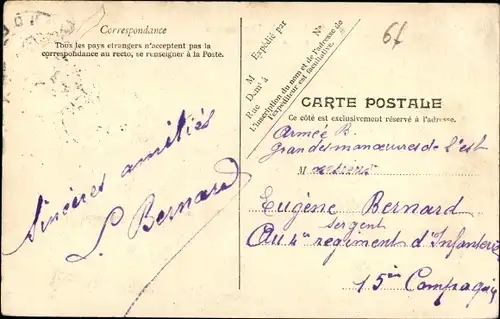 Correspondance
Tous les pays étrangers n'acceptent pas la
correspondance au recto, se renseigner à la Poste.
Sincères amitiés
L. Bernard
M Expédié par
Demt à
Rue No
L'inscription du nom et de l'adresse de
l'expéditeur est facultative.
CARTE POSTALE
Ce côté est exclusivement réservé à l'adresse.
Armée B.
Grandes manœuvres de l'est
M
Eugène Bernard
Sergent
Au 4e regiment d'Infanterie
15em Compagny